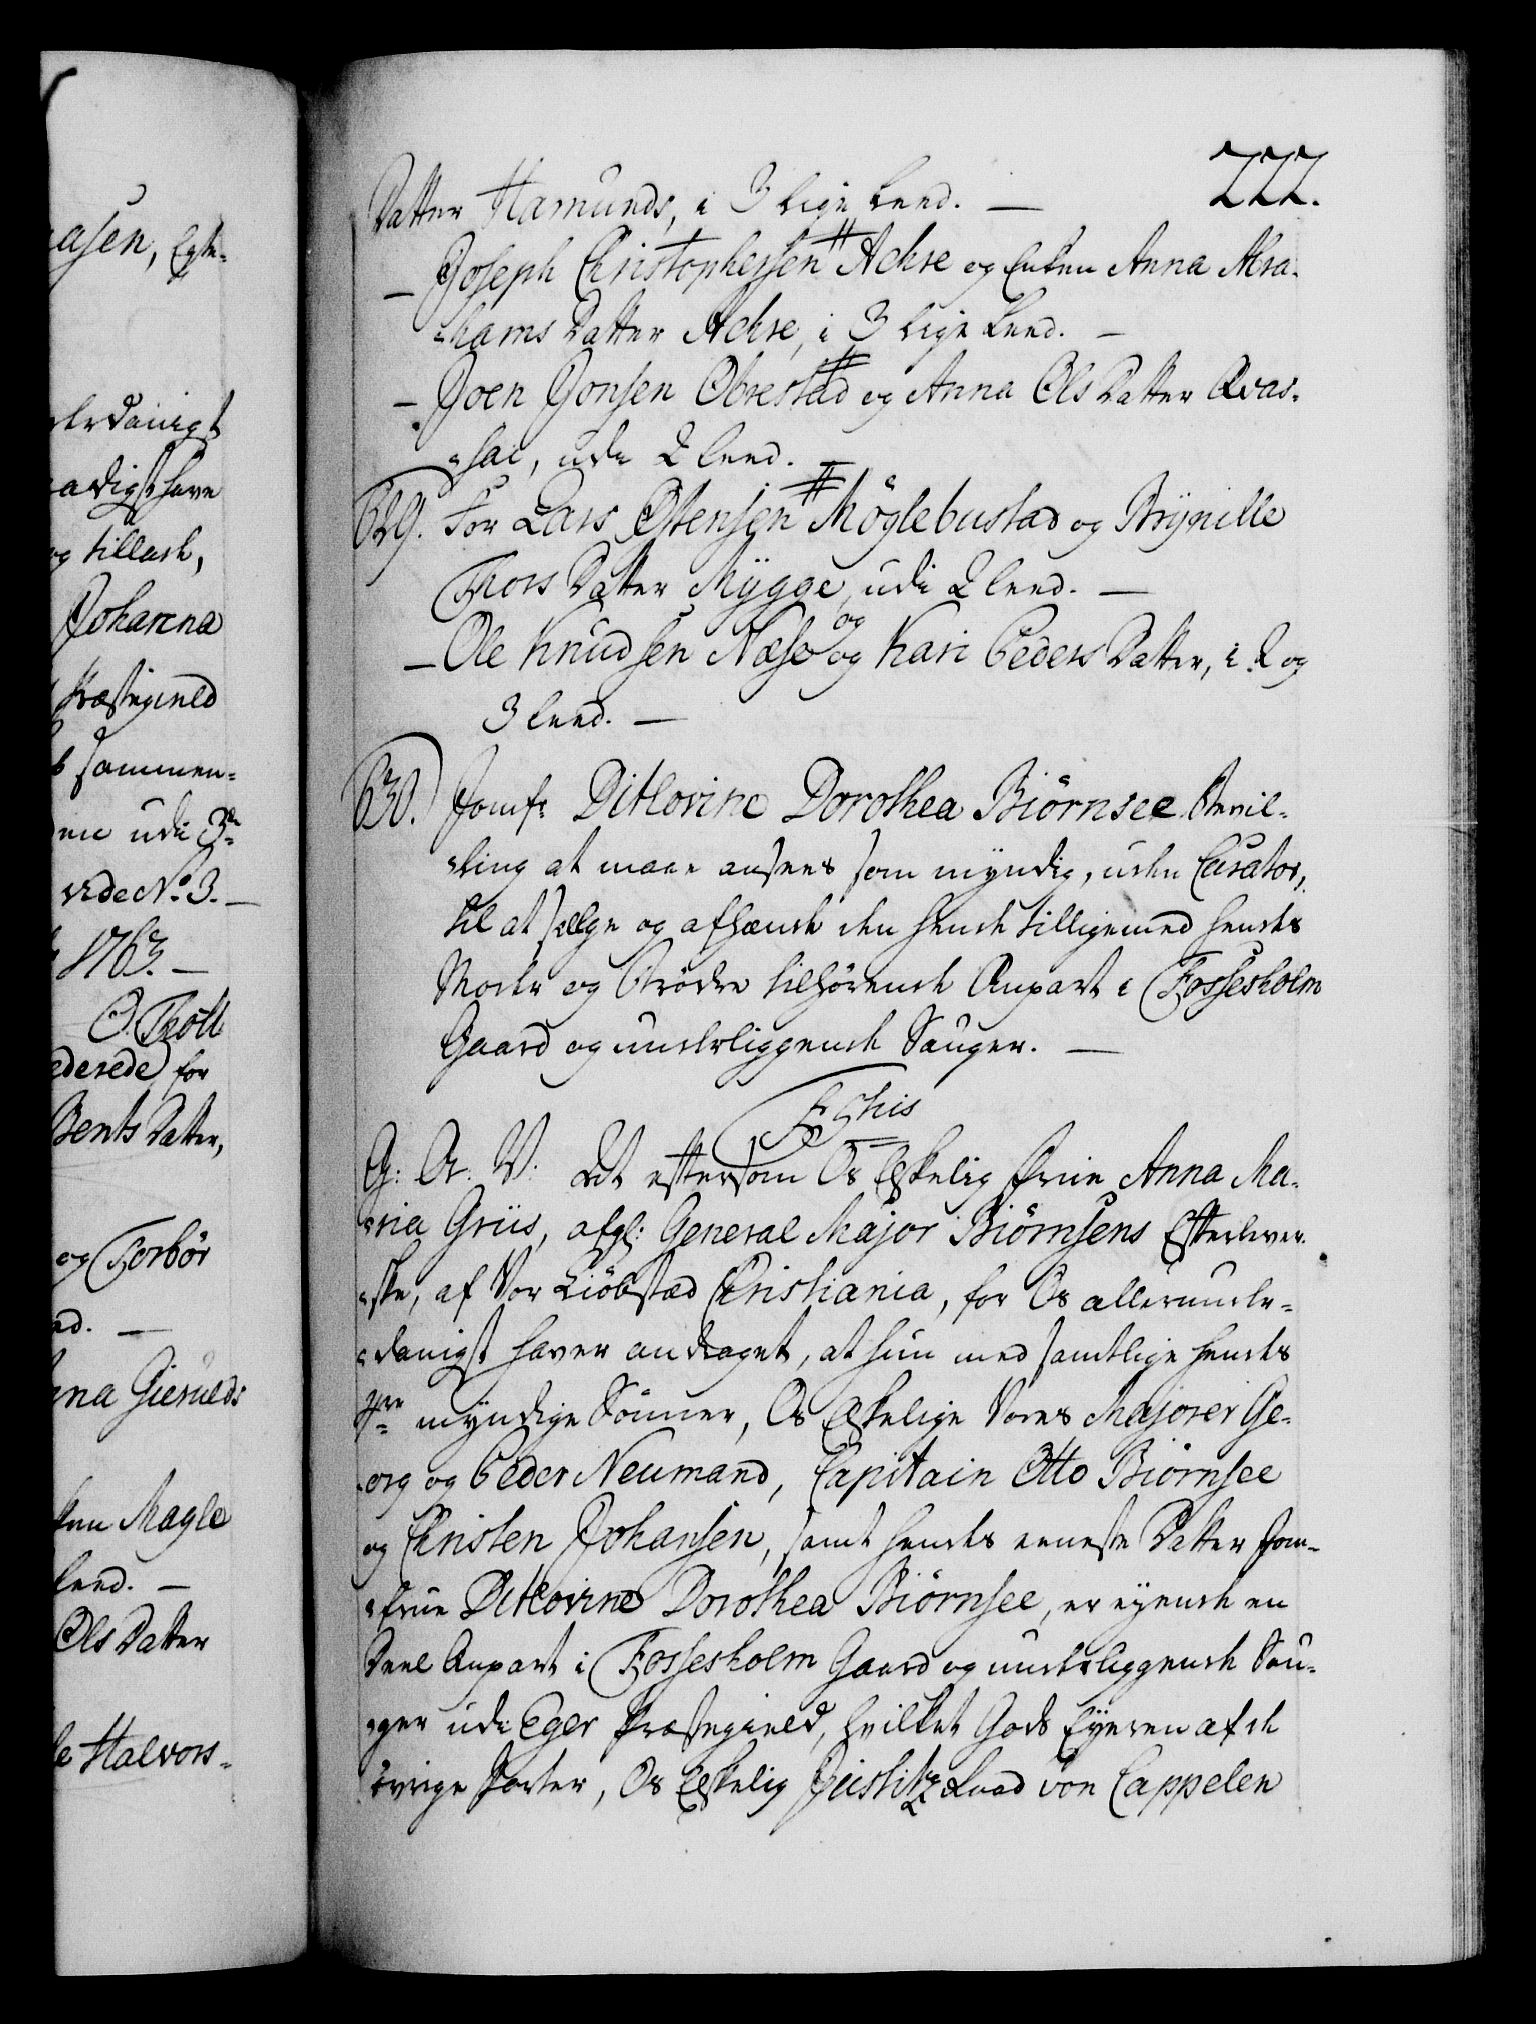 asen, Egte-
erdanigt
adigst have
og tillade,
Johanna
Præstegield
sammen-
en udi 3de
vide No. 3. —
1763. —
O. Thott
ederede for
Bents Datter,
og Torbör
ed. —
na Gieruelds
Magle
Leed. —
Ols Datter
le Halvors-
222.
Datter Hamunds, i 3 lige Leed. —
— Joseph Christophersen # Achre og Enken Anna Abra-
-hams Datter Achre, i 3 lige Leed. —
— Joen Jonsen Obrestad # og Anna Ols Datter Qvas-
-hai, udi 2 Leed. —
629. For Lars Ostensen # Möglebustad og Brynille
Thors Datter Mygge, udi 2 Leed. —
— Ole Knudsen Næse og og Kari Peders Datter, i 2 og
3 Leed. —
630. Jomfr. Ditlovine Dorothea Biörnsee Bevil-
-ling at maae ansees som myndig, uden Curator,
til at sælge og afhænde den hende tilligemed hendes
Moder og Brödre tilhörende Anpart i Fossesholm
Gaard og underliggende Sauger. —
F 5this
G: A: V: At eftersom Os Elskelig Frue Anna Ma-
-ria Griis, afgl: General Major Biörnsens Efterlever-
-ske, af Vor Kiöbstad Christiania, for Os allerunde-
-danigst haver andraget, at hun med samtlige hendes
4re myndige Sönner, Os Elskelige Vores Majorer Ge-
-org og Peder Neumand, Capitain Otto Biörnsee
og Christen Johansen, samt hendes eeneste Datter Jom-
-frue Ditlovine Dorothea Biörnsee, er eyende en
Deel Anpart i Fossesholm Gaard og underliggende Sau-
-ger udi Eger Præstegield, hvilket Gods Eyeren af de
övrige Parter, Os Elskelig Justitz Raad von Cappelen